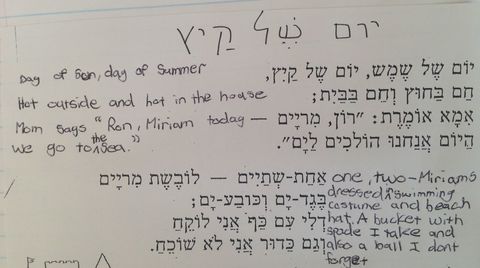 יום שֶׁל קַיִץ
יוֹם שֶׁל שֶׁמֶשׁ, יוֹם שֶׁל קַיִץ,
Day of Son, day of Summer
חַם בַּחוּץ וְחַם בַּבַּיִת;
Hot outside and hot in the house
אִמָּא אוֹמֶרֶת: "רוֹן, מִרְיָם —
Mom says "Ron, Miriam today —
הַיּוֹם אֲנַחְנוּ הוֹלְכִים לַיָּם".
We go to the sea."
אַחַת-שְׁתַּיִים — לוֹבֶשֶׁת מִרְיָם
בֶּגֶד-יָם וְכוֹבַע-יָם;
דְּלִי עִם כַּף אֲנִי לוֹקֵחַ
וְגַם כַּדּוּר אֲנִי לֹא שׁוֹכֵחַ.
one, two-Miriams
dressed in swimming
costume and beach
hat. A bucket with
spade I take and
also a ball I dont
forget